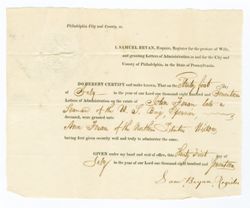 Philadelphia City and County, ss.
I, SAMUEL BRYAN, Esquire, Register for the probate of Wills,
and granting Letters of Administration in and for the City and
County of Philadelphia, in the State of Pennsylvania,
DO HEREBY CERTIFY and make known, That on the Thirty first day
of July in the year of our Lord one thousand eight hundred and fourteen
Letters of Administration on the estate of John late a
Seaman of the U. S. Brig
deceased, were granted unto
Ann of the Northern Liberties Widow
having first given security well and truly to administer the same.
GIVEN under my hand and seal of office, this Thirty first day of
July in the year of our Lord one thousand eight hundred and fourteen
Sam Bryan Register